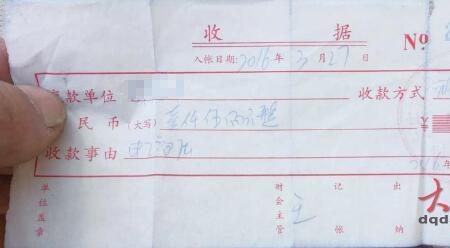 收 据
入帐日期:2016年3月27日 №
款单位 收款方式
民币(大写)壹仟伍佰元整
收款事由
2016年
单位盖章 财会主管 王 记帐 出纳
大
dqd